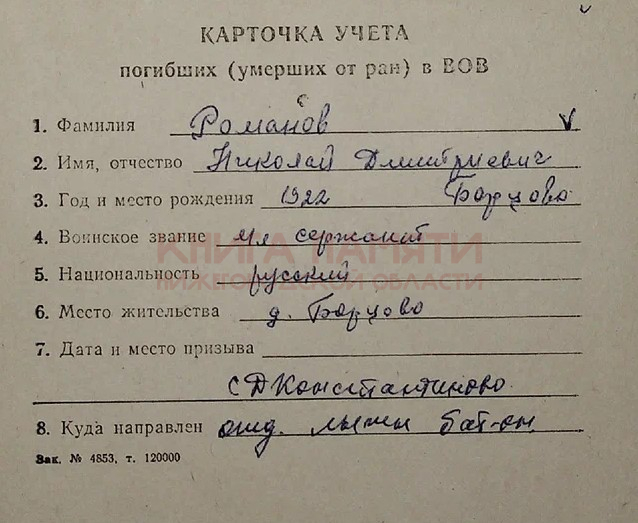 КАРТОЧКА УЧЕТА
погибших (умерших от ран) в ВОВ
1. Фамилия Романов
2. Имя, отчество Николай Дмитриевич
3. Год и место рождения 1922 Борцово
4. Воинское звание мл сержант
КНИГА ПАМЯТИ
5. Национальность русский
НИЖЕГОРОДСКОЙ ОБЛАСТИ
6. Место жительства д. Борцово
7. Дата и место призыва
с Д Константиново
8. Куда направлен отд. лыжн бат-он
Зак. № 4853, т. 120000